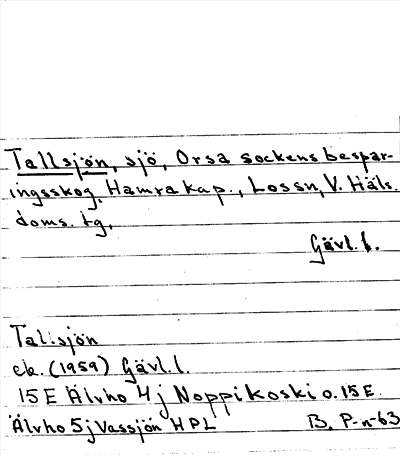 Tallsjön, sjö, Orsa sockens bespar-
ingsskog, Hamra kap., Lossn, V. Häls.
doms. tg.
Gävl. l.
Tallsjön
ek. (1959) Gävl. l.
15 E Älvho 4 j Noppikoski o. 15 E
Älvho 5 j Vassjön HPL
B. P-n-63